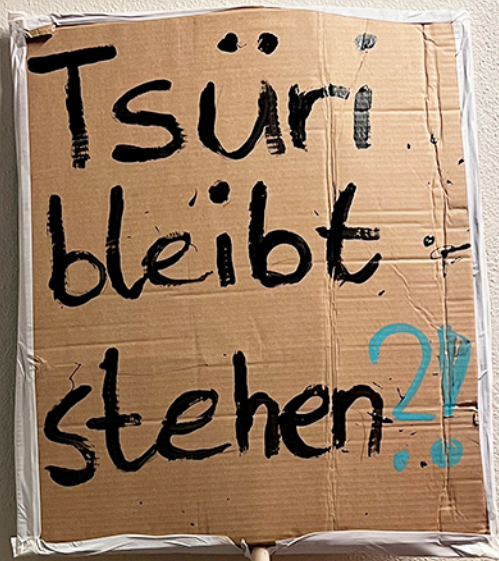 Tsüri
bleibt
stehen?!